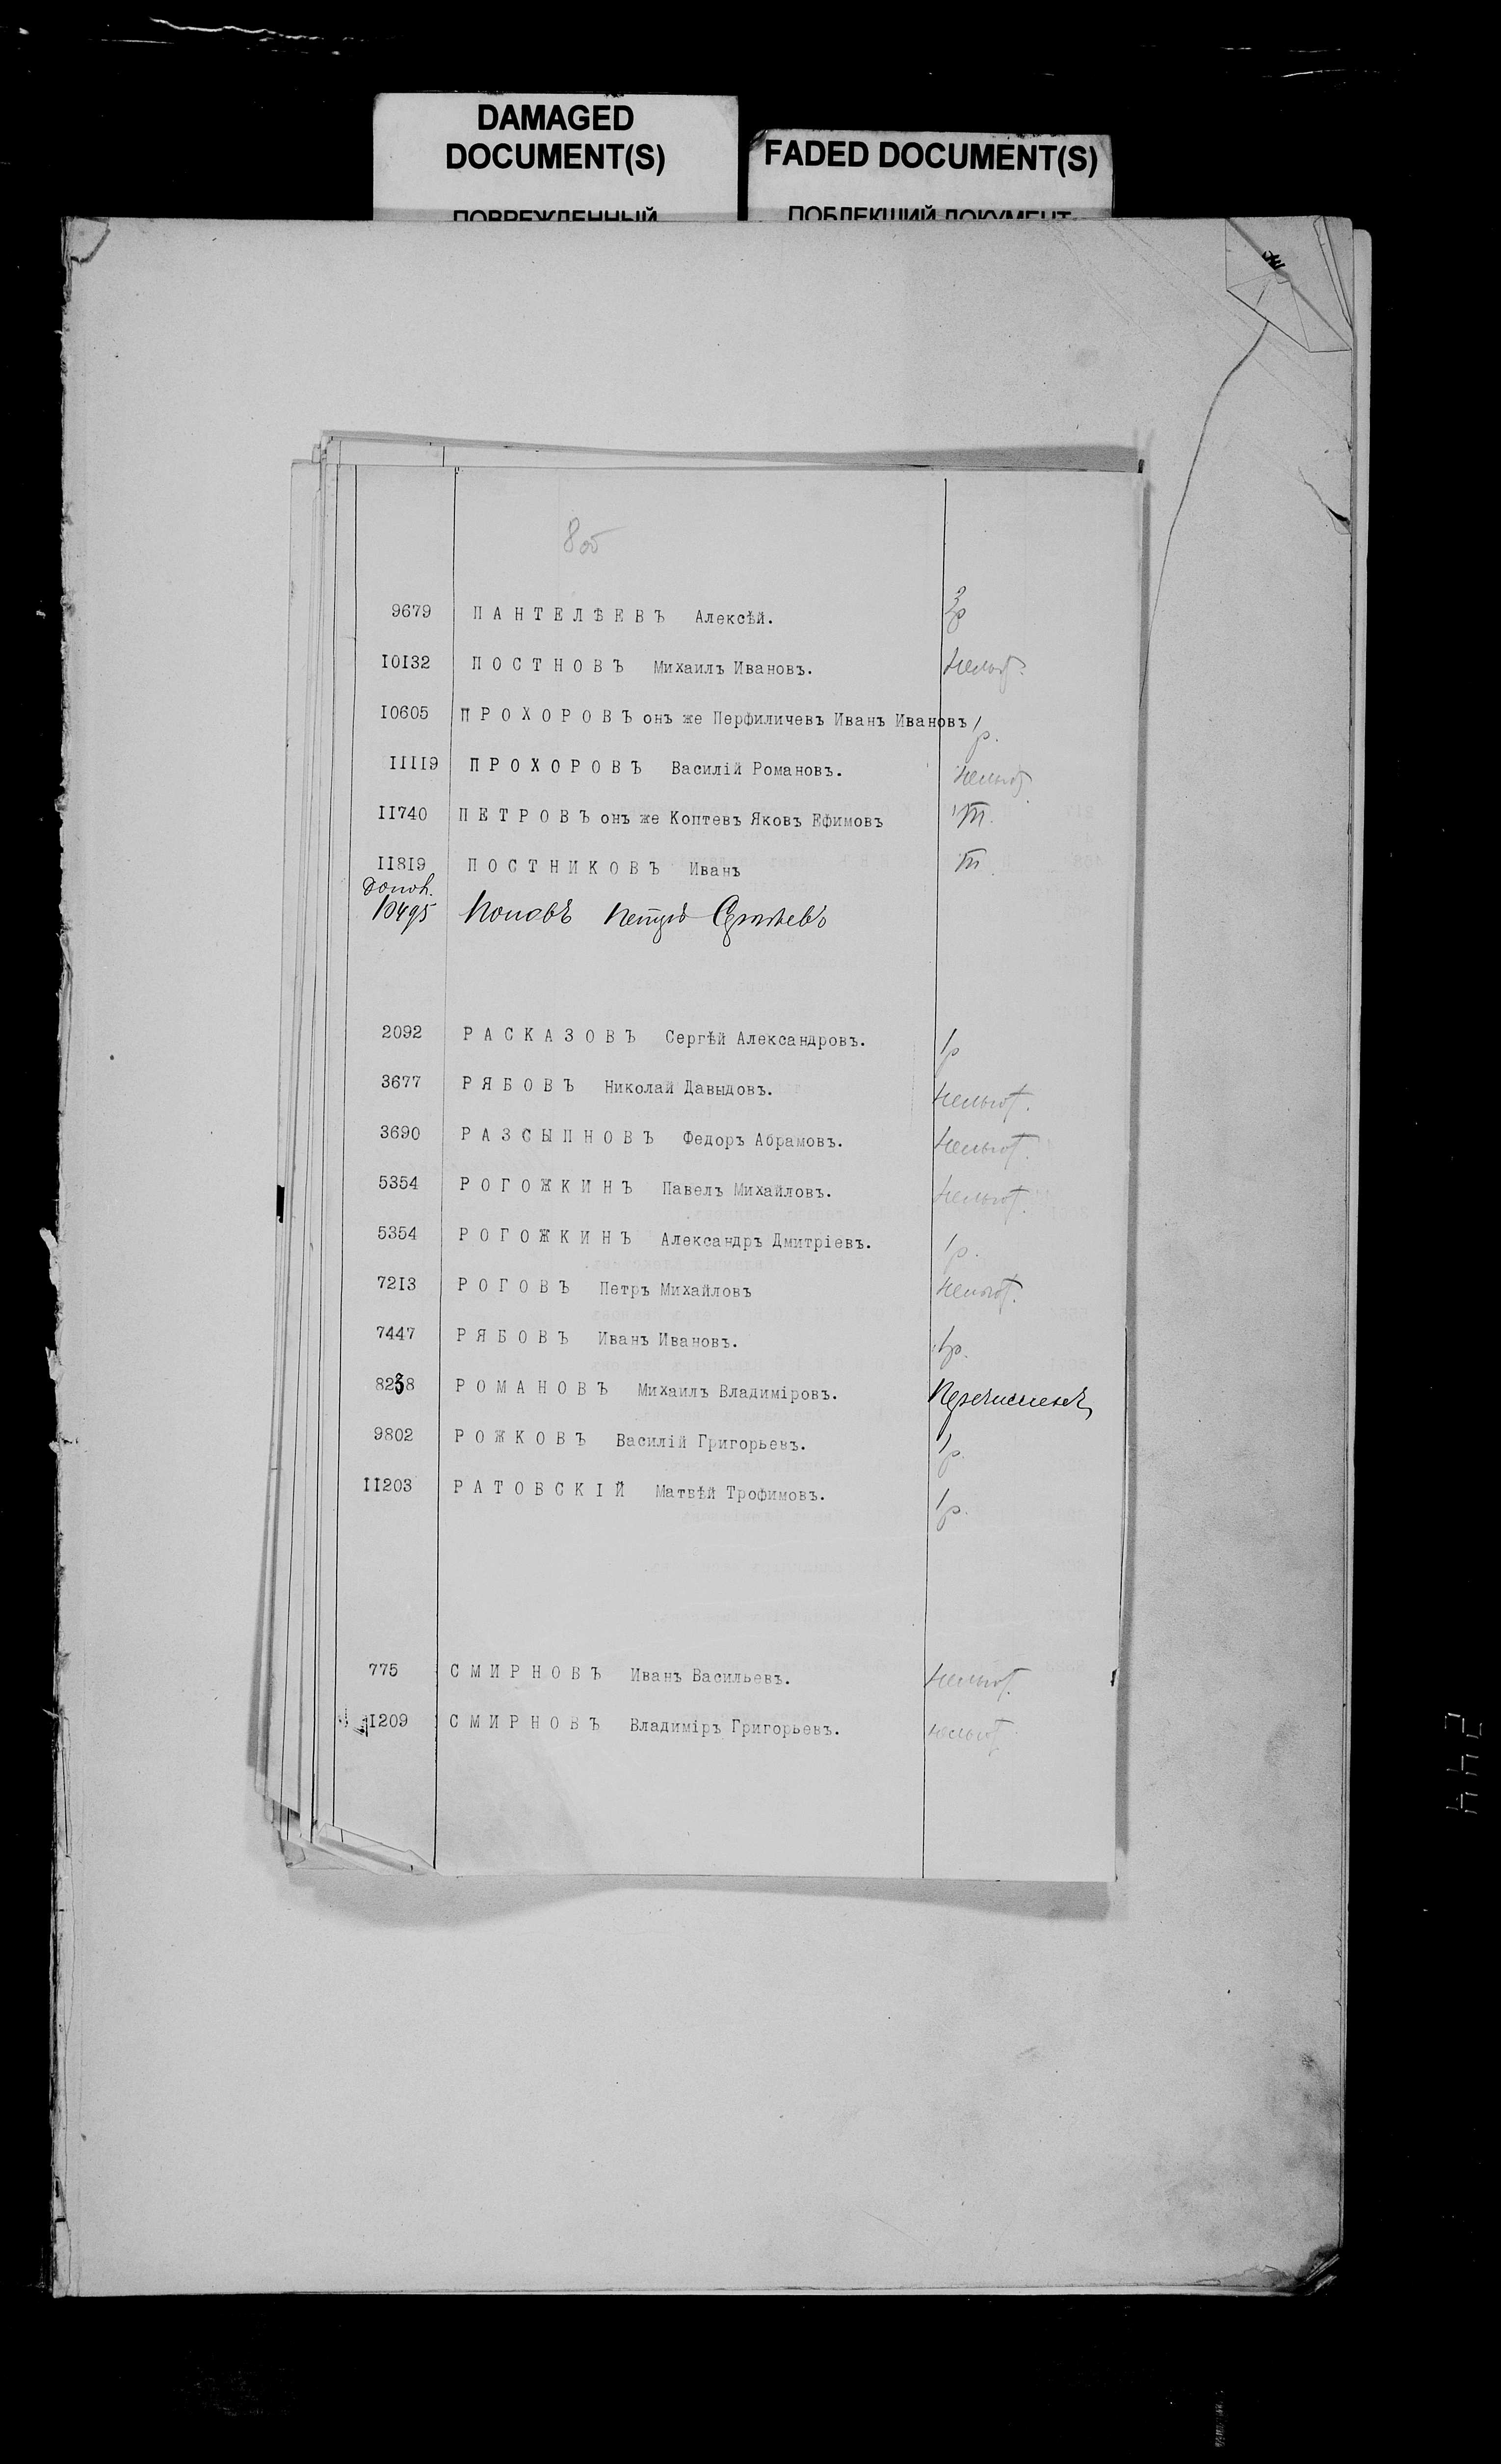 DAMAGED
DOCUMENT(S)
ПОВРЕЖДЕННЫЙ
FADED DOCUMENT(S)
ПОБЛЕКШИЙ ДОКУМЕНТ
8об
9679 ПАНТЕЛѢЕВЪ Алексѣй. 3р
10132 ПОСТНОВЪ Михаилъ Ивановъ. Нельгот.
10605 ПРОХОРОВЪ онъ же Перфиличевъ Иванъ Ивановъ 1р.
11119 ПРОХОРОВЪ Василій Романовъ. Нельгот.
11740 ПЕТРОВЪ онъ же Коптевъ Яковъ Ефимовъ
11819 ПОСТНИКОВЪ Иванъ
Допол.
10495 Поповъ Петръ Сергѣевъ
2092 РАСКАЗОВЪ Сергѣй Александровъ. 1р
3677 РЯБОВЪ Николай Давыдовъ. Нельгот.
3690 РАЗСЫПНОВЪ Федоръ Абрамовъ. Нельгот.
5354 РОГОЖКИНЪ Павелъ Михайловъ. Нельгот.
5354 РОГОЖКИНЪ Александръ Дмитріевъ. 1р.
7213 РОГОВЪ Петръ Михайловъ Нельгот.
7447 РЯБОВЪ Иванъ Ивановъ. 1р.
8238 РОМАНОВЪ Михаилъ Владиміровъ. Перечисленъ
9802 РОЖКОВЪ Василій Григорьевъ. 1р.
11203 РАТОВСКІЙ Матвѣй Трофимовъ. 1р.
775 СМИРНОВЪ Иванъ Васильевъ. Нельгот.
1209 СМИРНОВЪ Владиміръ Григорьевъ. Нельгот.
244